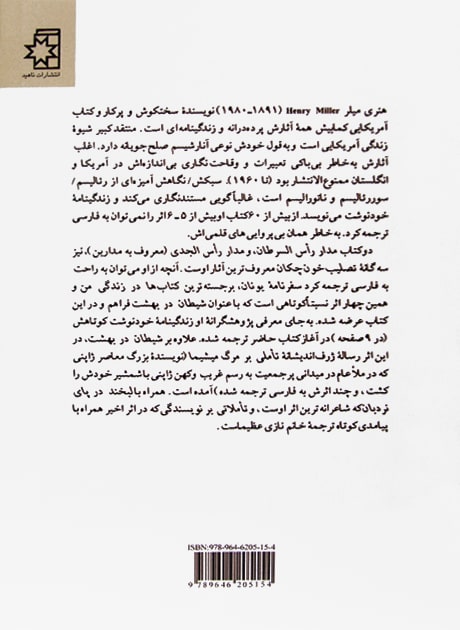 انتشارات ناهید
هنری میلر Henry Miller (۱۸۹۱-۱۹۸۰) نویسندهٔ سختکوش و پرکار و کتاب
آمریکایی کمابیش همهٔ آثارش پرده‌درانه و زندگینامه‌ای است. منتقد کبیر شیوهٔ
زندگی آمریکایی است و به قول خودش نوعی آنارشیسم صلح‌جویانه دارد. اغلب
آثارش به‌خاطر بی‌باکی تعبیرات و وقاحت‌نگاری بی‌اندازه‌اش در آمریکا و
انگلستان ممنوع‌الانتشار بود (تا ۱۹۶۰). سبکش/نگاهش آمیزه‌ای از رئالیسم/
سوررئالیسم و ناتورالیسم است، غالباً گویی مستندنگاری می‌کند و زندگینامهٔ
خودنوشت می‌نویسد. از بیش از ۶۰ کتاب او بیش از ۵-۶ اثر را نمی‌توان به فارسی
ترجمه کرد. به خاطر همان بی‌پروایی‌های قلمی‌اش.
دو کتاب مدار رأس السرطان، و مدار رأس الجدی (معروف به مدارین)، نیز
سه گانهٔ تصلیب خون‌چکان معروف‌ترین آثار اوست. آنچه از او می‌توان به راحت
به فارسی ترجمه کرد سفرنامهٔ یونان، برجسته‌ترین کتاب‌ها در زندگی من و
همین چهار اثر نسبتاً کوتاهی است که با عنوان شیطان در بهشت فراهم و در این
کتاب عرضه شده. به‌جای معرفی پژوهشگرانهٔ او زندگینامهٔ خودنوشت کوتاهش
(در ۹ صفحه) در آغاز کتاب حاضر ترجمه شده. علاوه بر شیطان در بهشت، در
این اثر رسالهٔ ژرف‌اندیشانهٔ تأملی بر مرگ میشیما (نویسندهٔ بزرگ معاصر ژاپنی
که در ملأعام در میدانی پرجمعیت به رسم غریب و کهن ژاپنی با شمشیر خودش را
کشت، و چند اثرش به فارسی ترجمه شده) آمده است. همراه با لبخند در پای
نردبان که شاعرانه‌ترین اثر اوست، و تأملاتی بر نویسندگی که در اثر اخیر همراه با
پیامدی کوتاه ترجمهٔ خانم نازی عظیماست.
ISBN:978-964-6205-15-4
9789646205154